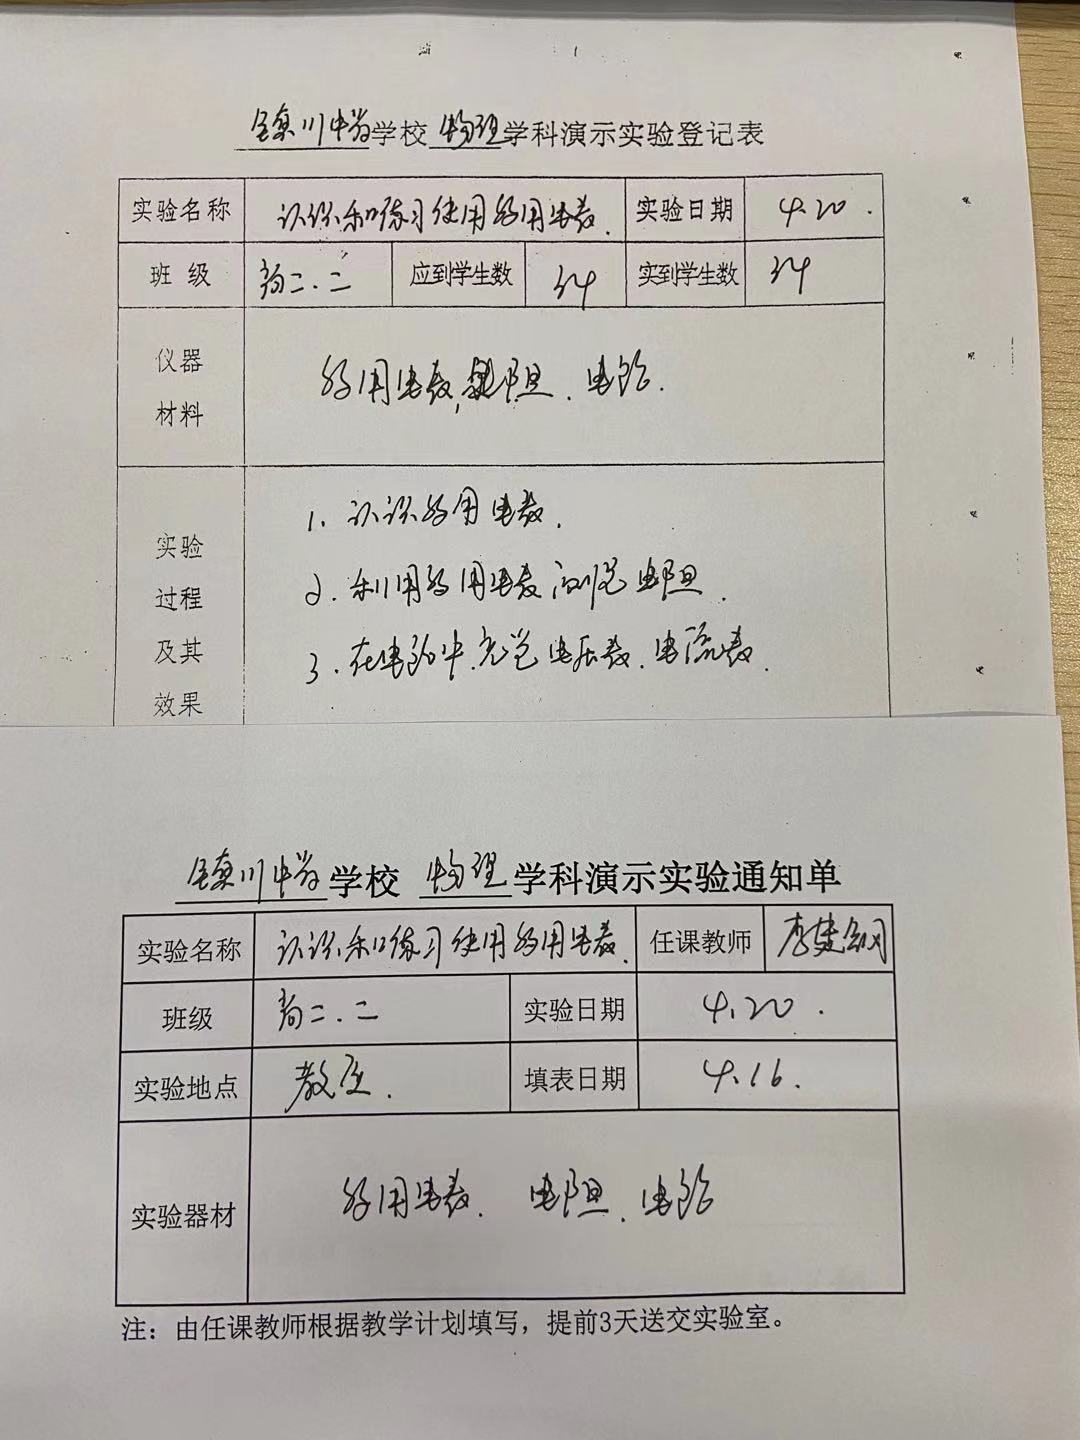 川中学学校物理学科演示实验登记表
实验名称 认识和练习使用多用电表. 实验日期 4.20.
班级 高二.二 应到学生数 34 实到学生数 34
仪器材料 多用电表, 电阻. 电路.
实验过程及其效果
1. 认识多用电表.
2. 利用多用电表测定电阻.
3. 在电路中充当电压表、电流表.
川中学学校 物理学科演示实验通知单
实验名称 认识和练习使用多用电表. 任课教师 李建钢
班级 高二.二 实验日期 4.20.
实验地点 教室. 填表日期 4.16.
实验器材 多用电表. 电阻. 电路
注：由任课教师根据教学计划填写，提前3天送交实验室。